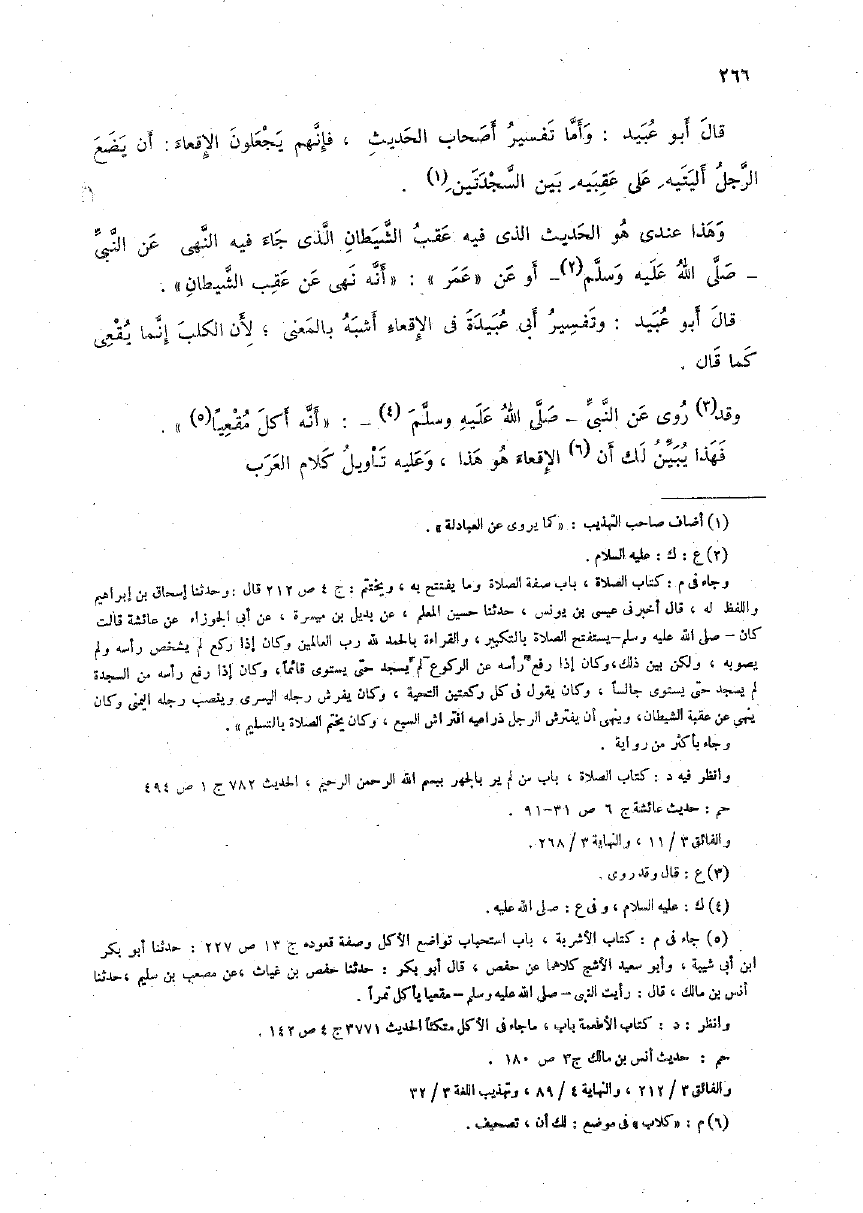 ٢٦٦
قالَ أبو عُبَيد : وَأَمَّا تَفسيرُ أَصَحاب الحَديثِ ، فإِنَّهم يَجْعَلونَ الإِقعاءَ : أَن يَضَعَ
الرَّجلُ أَليَتَيه ِ عَلى عَقِبَيه ِ بَين السَّجدَتَين ِ(١) .
وَهَذا عندى هُو الحَديث الذى فيه عَقبُ الشَّيَطانِ الَّذى جَاءَ فيه النَّهى عَن النَّبىِّ
ـ صَلَّى اللهُ عَلَيه وَسلَّم(٢)ـ أَو عَن «عمَر » : «أَنَّه نَهى عَن عَقِب الشَّيطانِ» .
قالَ أَبو عُبَيد : وتَفسِيرُ أَبى عُبَيدَةَ فى الإِقعاءِ أَشبَهُ بالمَعنى ؛ لِأَن الكلبَ إِنَّما يُقْعِى
كَما قَال .
وقد(٣) رُوى عَن النَّبىِّ ـ صَلَّى اللهُ عَلَيهِ وسلَّمَ (٤) ـ : «أَنَّه أَكلَ مُقْعِياً(٥) » .
فَهَذا يُبَيِّنُ لَك أَن (٦) الإِقعاءَ هُو هَذا ، وَعَليه تَأويلُ كَلام العَرَب
(١) أضاف صاحب التهذيب : «كما يروى عن العبادلة » .
(٢) ع : ك : عليه السلام .
وجاء فى م : كتاب الصلاة ، باب صفة الصلاة وما يفتتح به ، ويختتم : ج ٤ ص ٢١٢ قال : وحدثنا إسحاق بن إبراهيم
واللفظ له ، قال أخبر فى عيسى بن يونس ، حدثنا حسين المعلم ، عن بديل بن ميسرة ، عن أبى الجوزاء عن عائشة قالت
كان – صلى الله عليه وسلم–يستفتح الصلاة بالتكبير ، والقراءة بالحمد لله رب العالمين وكان إذا ركع لم يشخص رأسه ولم
يصوبه ، ولكن بين ذلك،وكان إذا رفع رأسه عن الركوع لم يسجد حتى يستوى قائماً، وكان إذا رفع رأسه من السجدة
لم يسجد حتى يستوى جالساً ، وكان يقول فى كل ركعتين التحية ، وكان يفرش رجله اليسرى وينصب رجله اليمنى وكان
ينهى عن عقبة الشيطان، وينهى أن يفترش الرجل ذراعيه افتراش السبع ، وكان يختم الصلاة بالتسليم » .
وجاء بأكثر من رواية .
وانظر فيه د : كتاب الصلاة ، باب من لم ير بالجهر ببسم الله الرحمن الرحيم ، الحديث ٧٨٢ ج ١ ص ٤٩٤
حم : حديث عائشة ج ٦ ص ٣١–٩١ .
والفائق ٣ / ١١ ، والنهاية ٣ / ٢٦٨ .
(٣) ع : قال وقد روى .
(٤) ك : عليه السلام ، و فى ع : صلى الله عليه .
(٥) جاء فى م : كتاب الأشربة ، باب استحباب تواضع الأكل وصفة قعوده ج ١٣ ص ٢٢٧ : حدثنا أبو بكر
ابن أبى شيبة ، وأبو سعيد الأشج كلاهما عن حفص ، قال أبو بكر : حدثنا حفص بن غياث ،عن مصعب بن سليم ،حدثنا
أنس بن مالك ، قال : رأيت النبى – صلى الله عليه وسلم – مقعيا يأكل تمراً .
وانظر : د : كتاب الأطعمة باب ، ماجاء فى الأكل متكئاً الحديث ٣٧٧١ ج ٤ ص ١٤٢ .
حم : حديث أنس بن مالك ج٣ ص ١٨٠ .
والفائق ٣ / ٢١٢ ، والنهاية ٤ / ٨٩ ، وتهذيب اللغة ٣ / ٣٢
(٦) م : «كلاب » فى موضع : لك أن ، تصحيف .